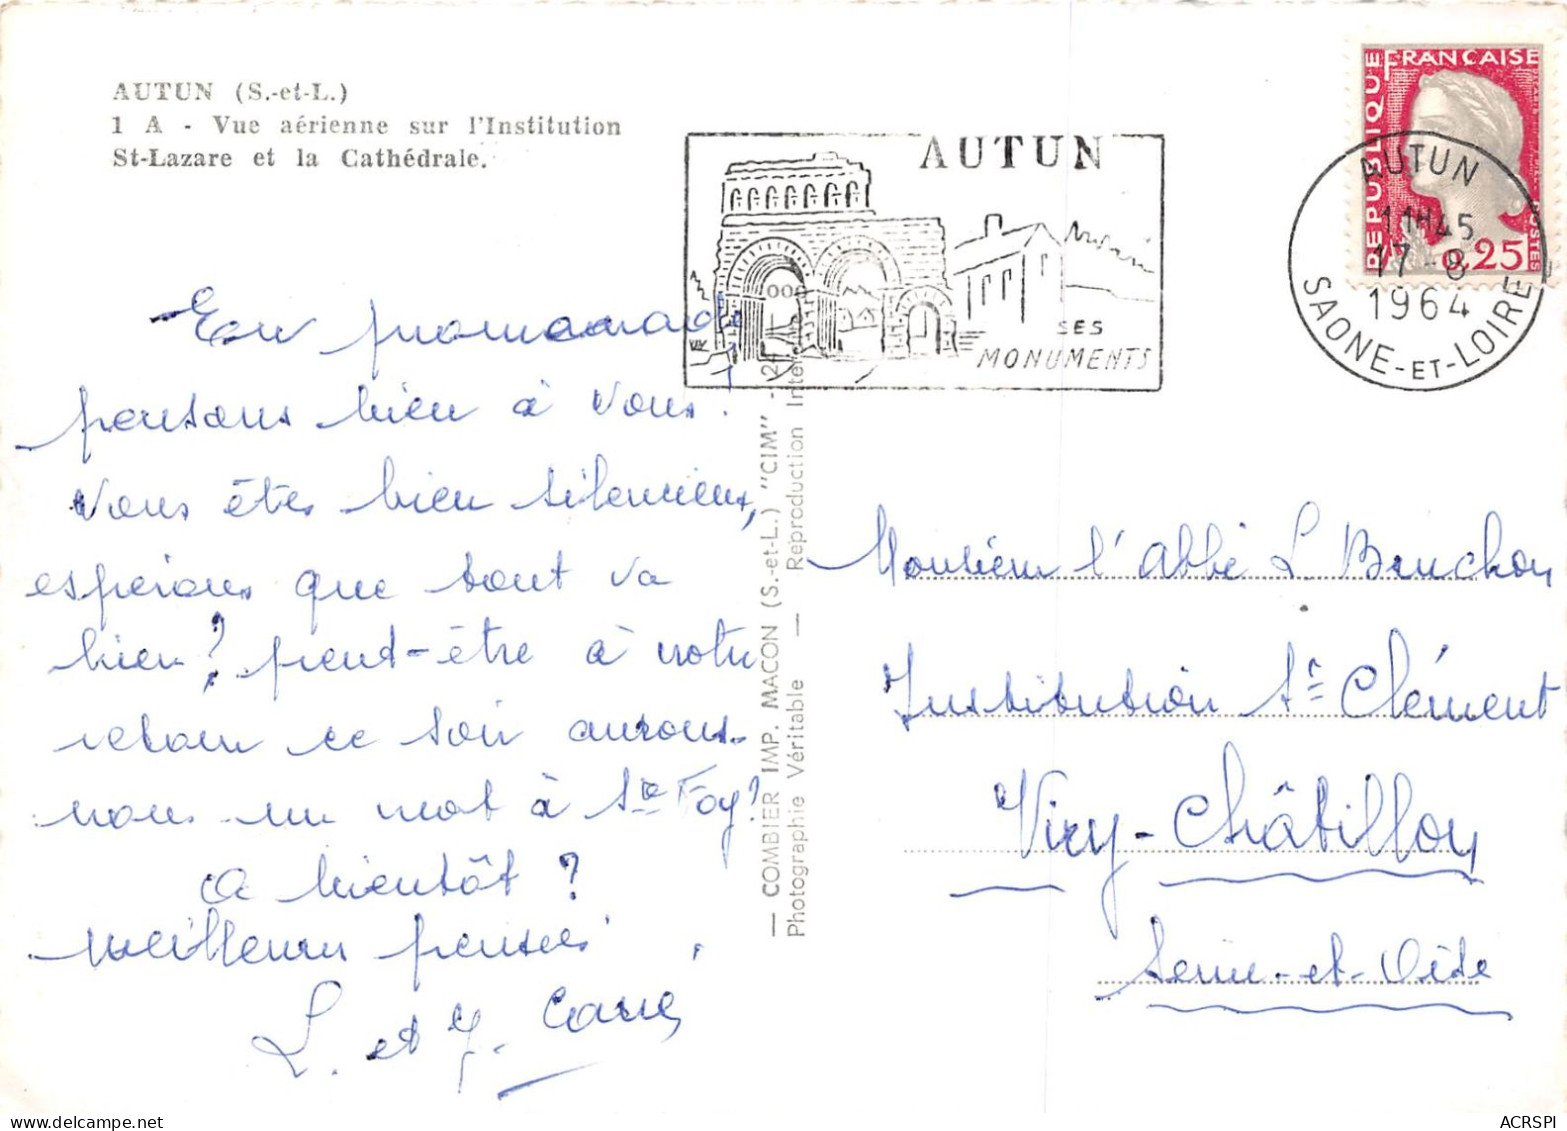 AUTUN (S.-et-L.)
1 A - Vue aérienne sur l'Institution
St-Lazare et la Cathédrale.
AUTUN
SES
MONUMENTS
RÉPUBLIQUE FRANÇAISE
POSTES
0,25
AUTUN
11H45
17-8
1964
SAONE-ET-LOIRE
En promenade
pensons bien à vous!
Vous êtes bien silencieux,
espérons que tout va
bien? peut-être à notre
retour ce soir aurons-
nous un mot à Ste Foy?
A bientôt?
Meilleures pensées
L. et J. Carré
— COMBIER IMP. MACON (S.-et-L.) "CIM" -
Photographie Véritable — Reproduction Inter
Monsieur l'Abbé L. Bruchon
Institution St Clément
Viry-Châtillon
Seine-et-Oise
delcampe.net
ACRSPI